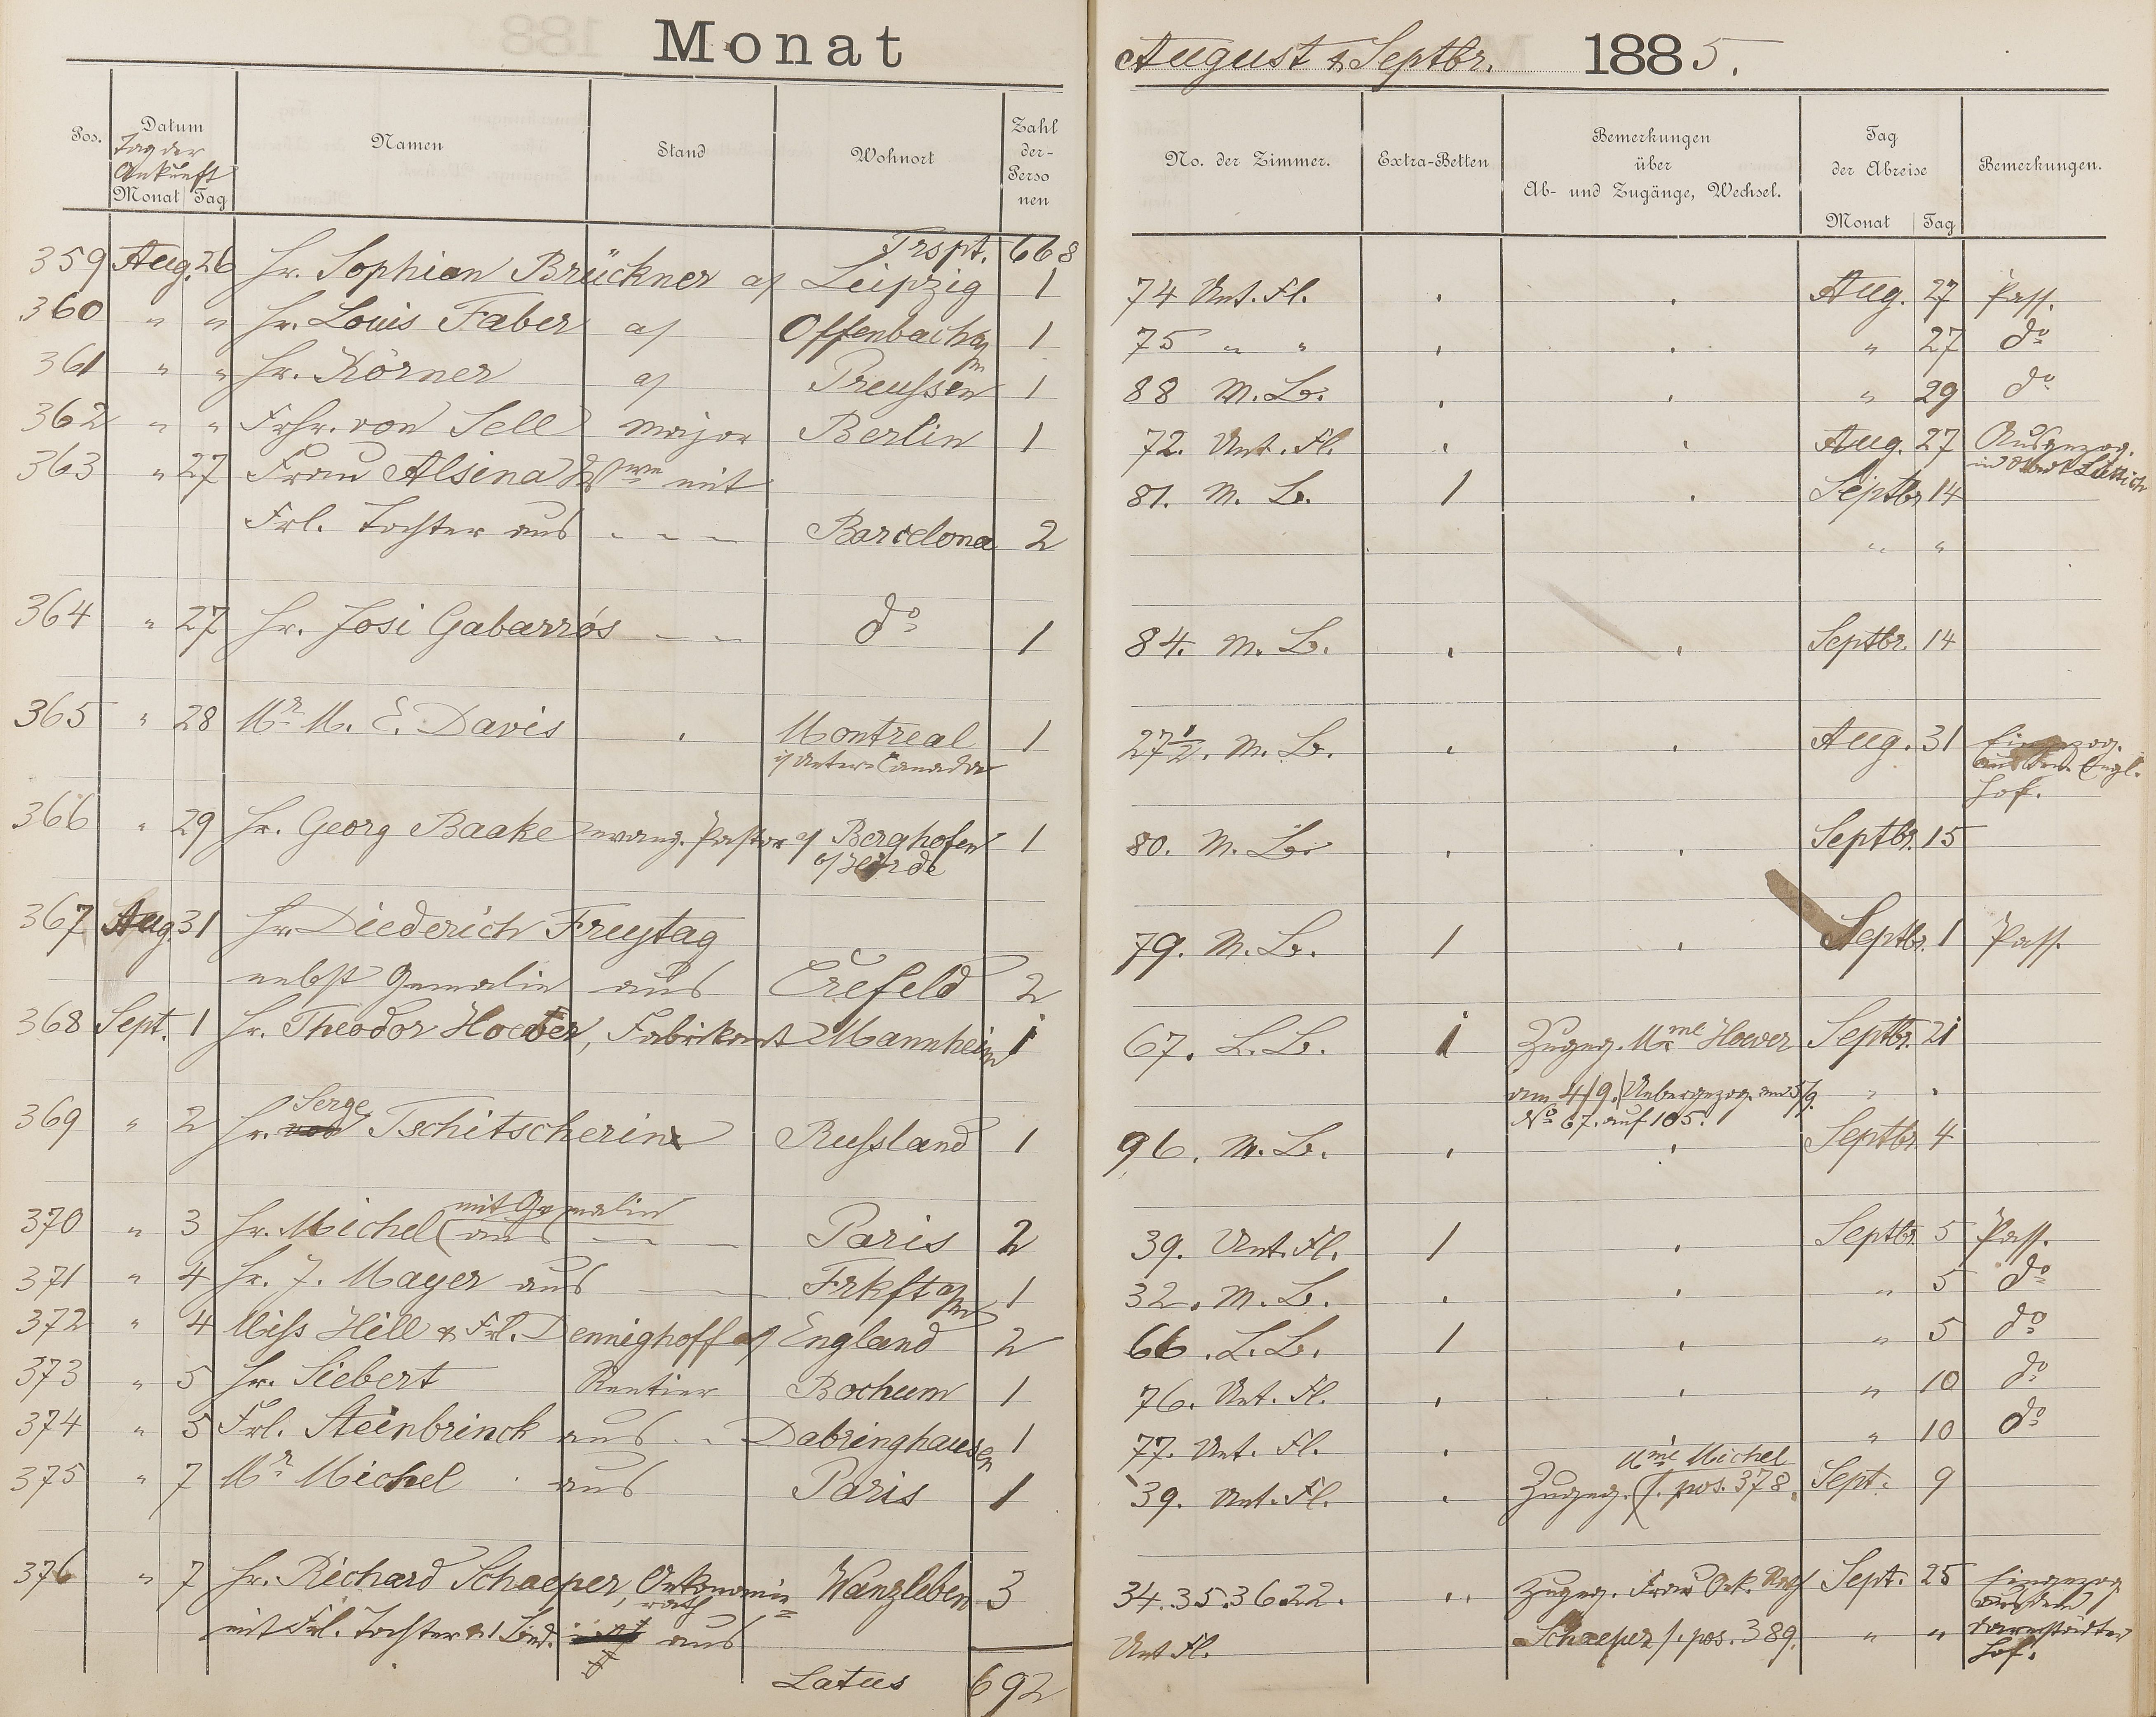 Monat August & Septbr. 1885.
Pos. Datum Tag der Ankunft Monat Tag Namen Stand Wohnort Zahl der- Perso nen No. der Zimmer. Extra-Betten Bemerkungen über Ab- und Zugänge, Wechsel. Tag der Abreise Monat Tag Bemerkungen.
Trspt. 668
359 Aug. 26 Hr. Sophian Brückner a/ Leipzig 1 74 Unt. Fl. Aug. 27 Pass.
360 " " Hr. Louis Faber a/ Offenbach a/m 1 75 " " " 27 do
361 " " Hr. Körner a/ Preußen 1 88 M. B. " 29 do
362 " " Frhr. von Sell Major Berlin 1 72. Unt. Fl. Aug. 27 Ausgezog.
363 " 27 Frau Alsina Wwe mit 81. M. B. 1 Septbr 14
Frl. Tochter aus - - - Barcelona 2 " "
364 " 27 Hr. Josi Gabarrós - - do 1 84. M. B. Septbr. 14
365 " 28 Mr M. E. Davis Montreal 1 27 1/2. M. B. Aug. 31 Eingezog.
i/ Unter-Canada aus dem Engl.
Hof.
366 " 29 Hr. Georg Baake evang. Pastor a/ Berghofen 1 80. M. B. Septbr. 15
367 Aug. 31 Hr. Diederich Freytag 79. M. B. 1 Septbr. 1 Pass.
nebst Gemalin aus Crefeld 2
368 Sept. 1 Hr. Theodor Hoever, Fabrikant Mannheim 1 67. L. B. 1 Zugeg. Mme Hoever Septbr. 21
am 4/9. Uebergezog. am 5/9. " "
No 67. auf 105.
Serge
369 " 2 Hr. Tschitscherin Rußland 1 96. M. B. Septbr 4
mit Gemalin
370 " 3 Hr. Michel (aus - - Paris 2 39. Unt. Fl. 1 Septbr 5 Pass.
371 " 4 Hr. J. Mayer aus - - Frkft a/m 1 32. M. B. " 5 do
372 " 4 Miss Hill & Frl. Dennighoff a/ England 2 66. L. B. 1 " 5 do
373 " 5 Hr. Siebert Rentier Bochum 1 76. Unt. Fl. " 10 do
374 " 5 Frl. Steinbrinck aus - - Dabringhausen 1 77. Unt. Fl. " 10 do
Mme Michel
375 " 7 Mr Michel aus Paris 1 39. Unt. Fl. Zugeg. (s. pos. 378. Sept. 9
376 " 7 Hr. Richard Schaeper, Oekonomie= Wanzleben 3 34. 35. 36. 22. Zugeg. Frau Oek. Rath Sept. 25 Eingezog
rath aus dem
mit Frl. Tochter & 1 Bed. aus Unt Fl. Schaeper s. pos. 389. " " Darmstädter
Hof.
Latus 692